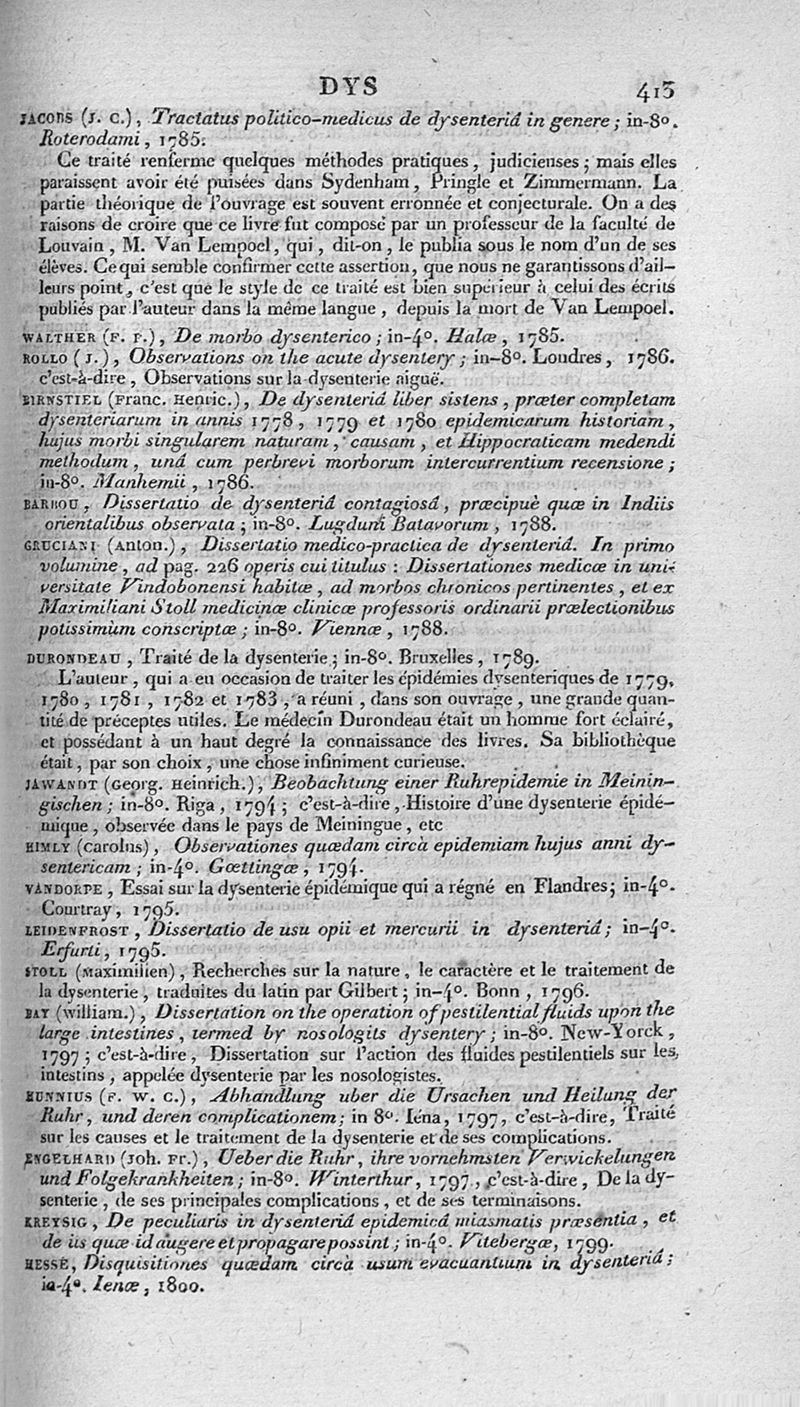 DYS 415
JACOBS (J. C.), Tractatus politico-medicus de dysenteriâ in genere; in-8°.
Roterodami, 1785.
Ce traité renferme quelques méthodes pratiques, judicieuses; mais elles
paraissent avoir été puisées dans Sydenham, Pringle et Zimmermann. La
partie théorique de l'ouvrage est souvent erronnée et conjecturale. On a des
raisons de croire que ce livre fut composé par un professeur de la faculté de
Louvain, M. Van Lempoel, qui, dit-on, le publia sous le nom d'un de ses
élèves. Ce qui semble confirmer cette assertion, que nous ne garantissons d'ail-
leurs point, c'est que le style de ce traité est bien supérieur à celui des écrits
publiés par l'auteur dans la même langue, depuis la mort de Van Lempoel.
WALTHER (F. F.), De morbo dysenterico; in-4°. Halæ, 1785.
ROLLO (J.), Observations on the acute dysentery; in-8°. Londres, 1786.
c'est-à-dire, Observations sur la dysenterie aiguë.
BIRNSTIEL (Franc. Henric.), De dysenteriâ liber sistens, præter completam
dysenteriarum in annis 1778, 1779 et 1780 epidemicarum historiam,
hujus morbi singularem naturam, causam, et Hippocraticam medendi
methodum, unâ cum perbrevi morborum intercurrentium recensione;
in-8°. Manhemii, 1786.
BARBOU, Dissertatio de dysenteriâ contagiosâ, præcipuè quæ in Indiis
orientalibus observata; in-8°. Lugduni Batavorum, 1788.
CRUCIANI (Anton.), Dissertatio medico-practica de dysenteriâ. In primo
volumine, ad pag. 226 operis cui titulus: Dissertationes medicæ in uni-
versitate Vindobonensi habitæ, ad morbos chronicos pertinentes, et ex
Maximiliani Stoll medicinæ clinicæ professoris ordinarii prælectionibus
potissimùm conscriptæ; in-8°. Viennæ, 1788.
DURONDEAU, Traité de la dysenterie; in-8°. Bruxelles, 1789.
L'auteur, qui a eu occasion de traiter les épidémies dysenteriques de 1779,
1780, 1781, 1782 et 1783, a réuni, dans son ouvrage, une grande quan-
tité de préceptes utiles. Le médecin Durondeau était un homme fort éclairé,
et possédant à un haut degré la connaissance des livres. Sa bibliothèque
était, par son choix, une chose infiniment curieuse.
JAWANDT (Georg. Heinrich.), Beobachtung einer Ruhrepidemie in Meinin-
gischen; in-8°. Riga, 1794; c'est-à-dire, Histoire d'une dysenterie épidé-
mique, observée dans le pays de Meiningue, etc
HIMLY (Carolus), Observationes quædam circà epidemiam hujus anni dy-
sentericam; in-4°. Gœttingæ, 1794.
VANDORPE, Essai sur la dysenterie épidémique qui a régné en Flandres; in-4°.
Courtray, 1795.
LEIDENFROST, Dissertatio de usu opii et mercurii in dysenteriâ; in-4°.
Erfurti, 1795.
STOLL (Maximilien), Recherches sur la nature, le caractère et le traitement de
la dysenterie, traduites du latin par Gilbert; in-4°. Bonn, 1796.
BAY (William.), Dissertation on the operation of pestilential fluids upon the
large intestines, termed by nosologits dysentery; in-8°. New-Yorck,
1797; c'est-à-dire, Dissertation sur l'action des fluides pestilentiels sur les
intestins, appelée dysenterie par les nosologistes.
HUNNIUS (F. W. C.), Abhandlung uber die Ursachen und Heilung der
Ruhr, und deren complicationem; in 8°. Iéna, 1797, c'est-à-dire, Traité
sur les causes et le traitement de la dysenterie et de ses complications.
ENGELHARD (Joh. Fr.), Ueber die Ruhr, ihre vornehmsten Verwickelungen
und Folgekrankheiten; in-8°. Winterthur, 1797, c'est-à-dire, De la dy-
senterie, de ses principales complications, et de ses terminaisons.
KREYSIG, De peculiaris in dysenteriâ epidemicâ miasmatis præsentia, et
de iis quæ id augere et propagare possint; in-4°. Vitebergæ, 1799.
HESSE, Disquisitiones quædam circà usum evacuantium in dysenteriâ;
in-4°. Ienæ, 1800.